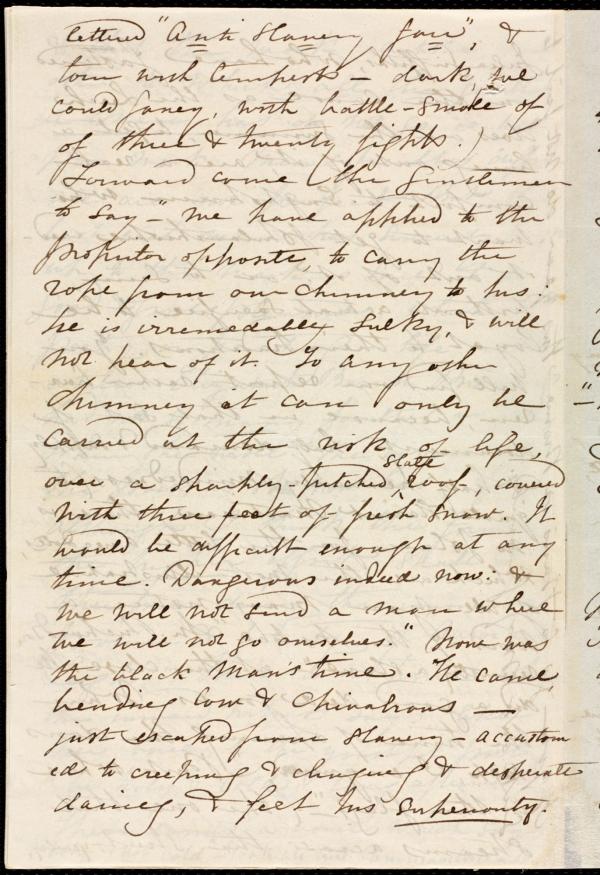 lettered "Anti Slavery Fair", &
torn with tempests – dark, we
could fancy, with battle-smoke of
of three & twenty fights.)
Forward come the Gentlemen
to say – "We have applied to the
proprietor opposite, to carry the
rope from our chimney to his:
he is irremediably sulky, & will
not hear of it. To any other
chimney it can only be
carried at the risk of life,
over a sharply-pitched slate roof, covered
with three feet of fresh snow. It
would be difficult enough at any
time. Dangerous indeed now: &
we will not send a man where
we will not go ourselves." Now was
the black man's time. He came,
bending low & chivalrous —
just escaped from slavery – accustom
ed to creeping & clinging & desperate
daring, & felt his superiority.